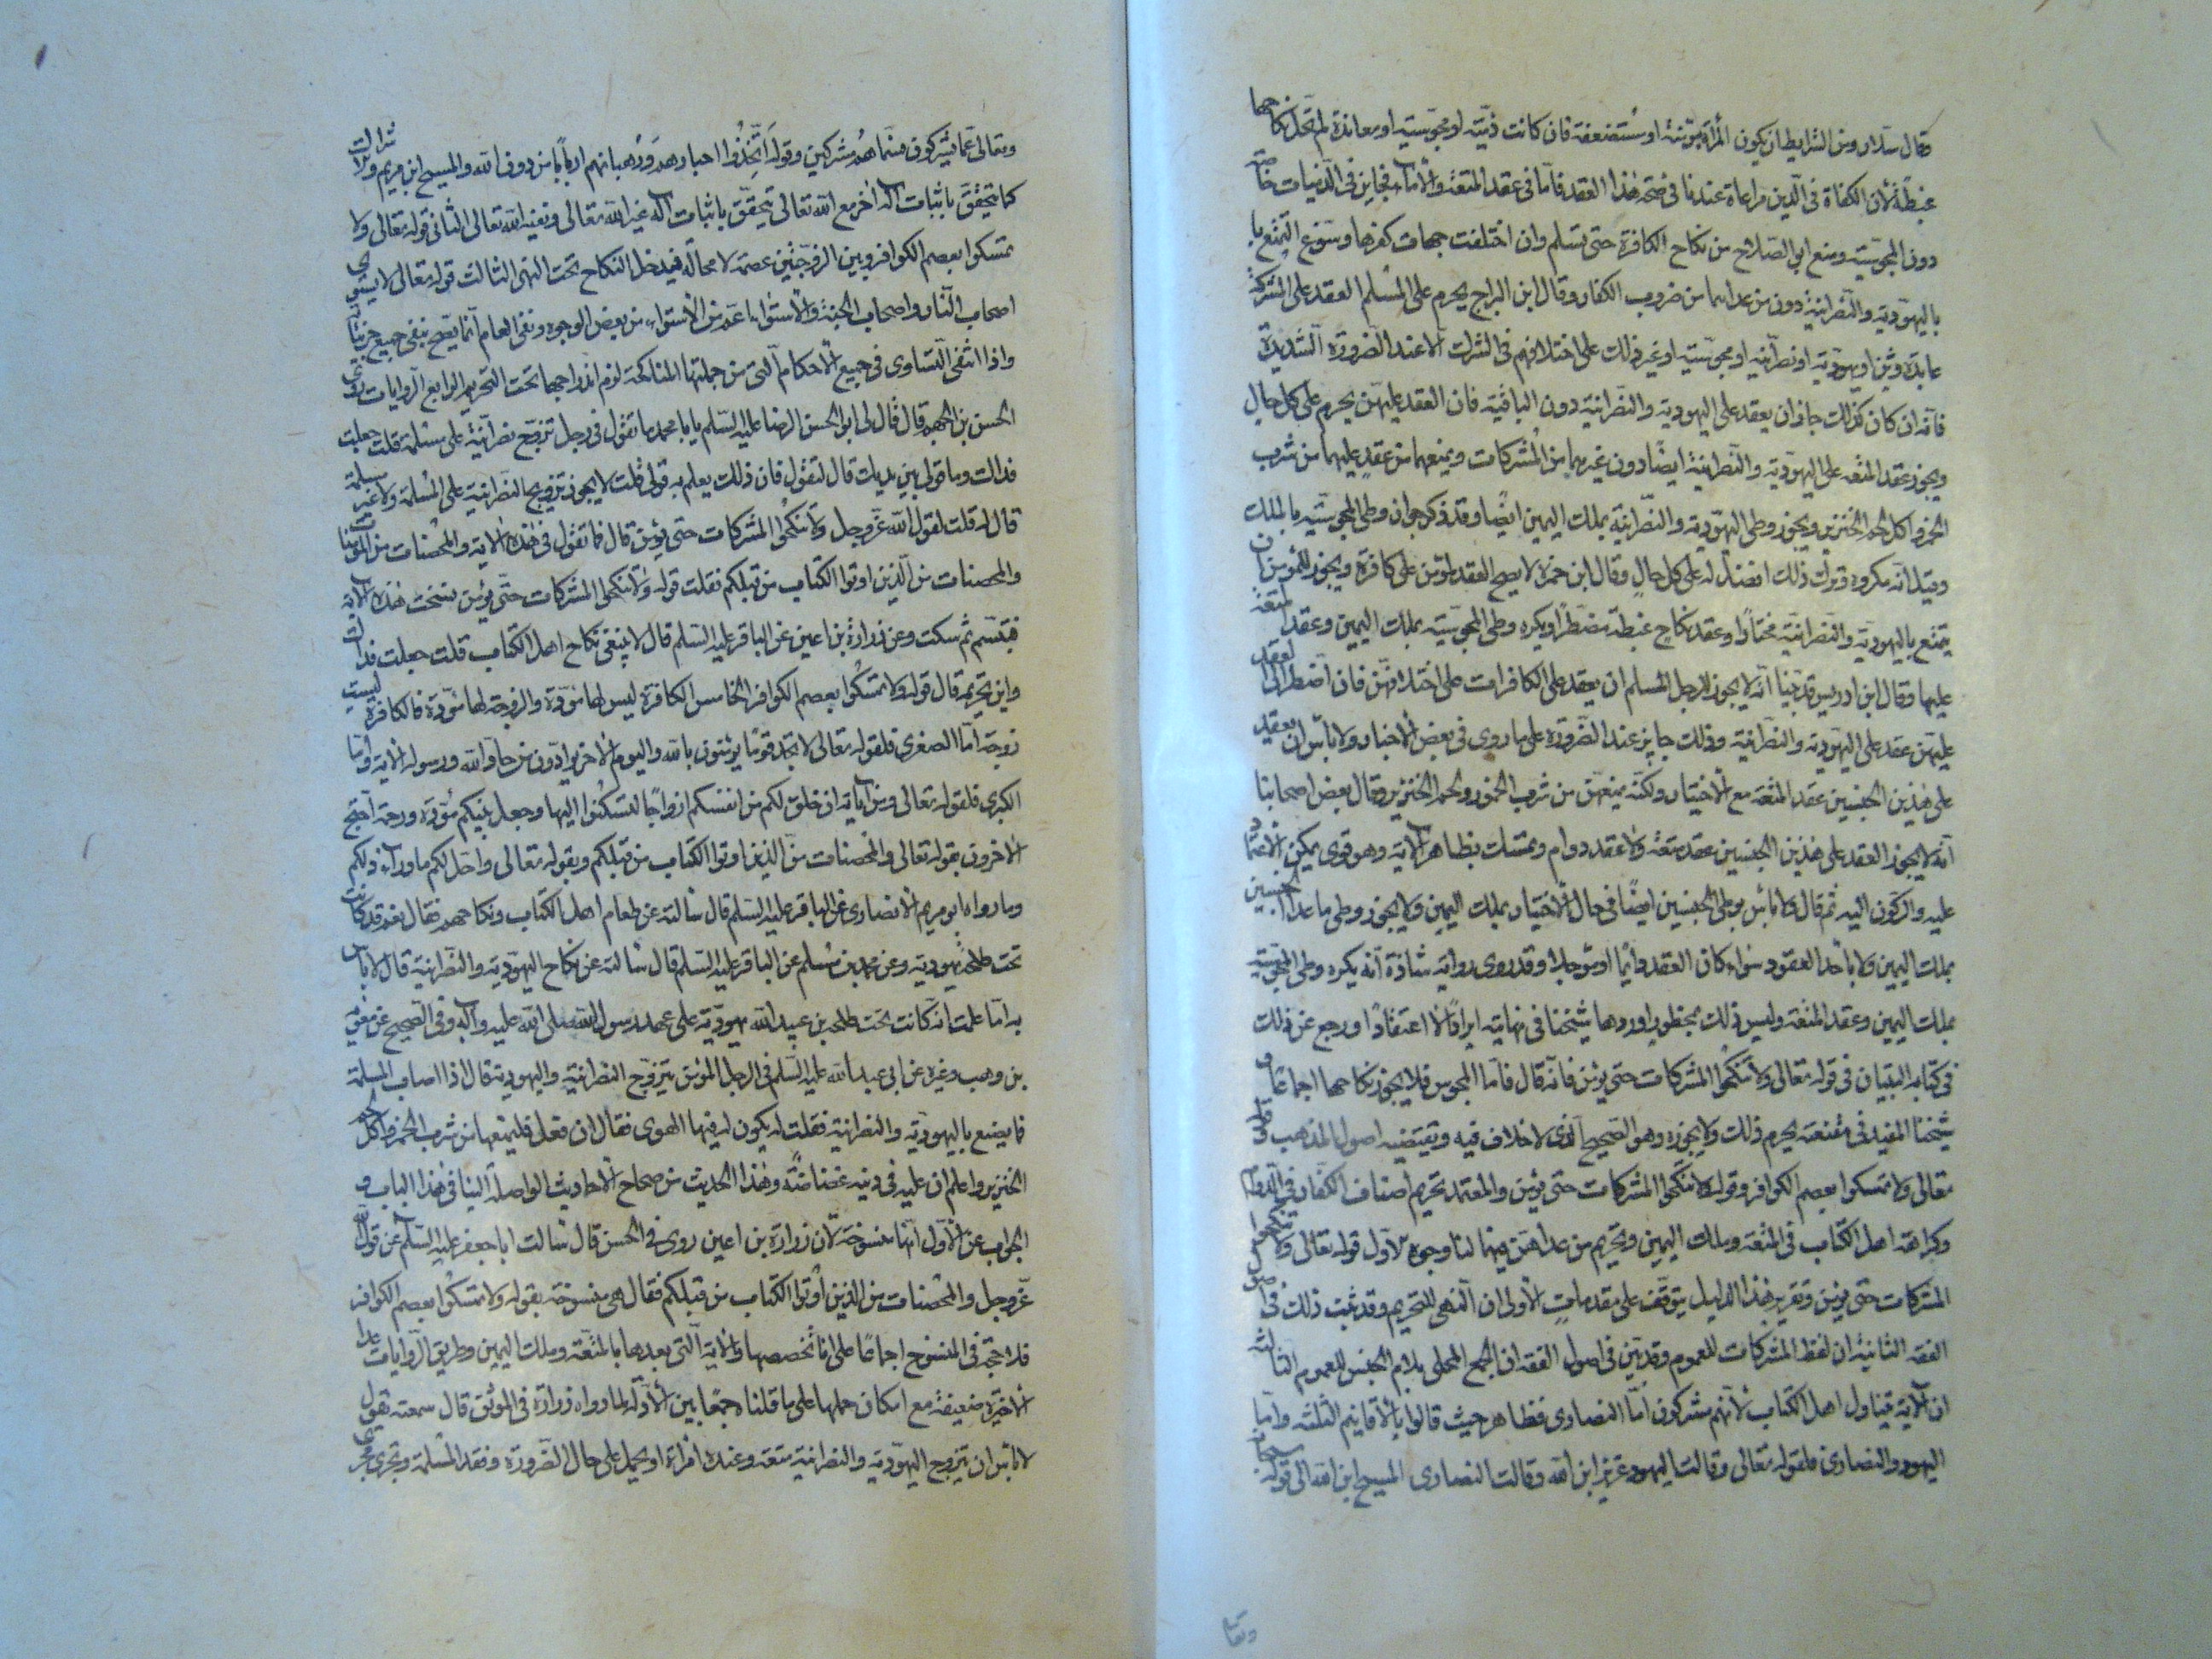 وقال سلّار ومن الشرايط ان يكون المرأة مؤمنة او مستضعفة فان كانت ذمّيّة او مجوسيّة او معاندة لم تحلّ نكاحها
غبطةً لأن الكفاة في الدّين مراعاة عندنا في صحّة هٰذا العقد فأمّا في عقد المتعة والأماء فجايز في الذّميات خاصّة
دون المجوسيّة ومنع ابو الصّلاح من نكاح الكافرة حتى تسلم وان اختلفت جهات كفرها وسوّغ التمتّع با
باليهوديّة والنّصرانيّة دون من عداهما من ضروب الكفار وقال ابن البراج يحرم على المسلم العقد على المشركة
عابدة وثن او يهوديّة او نصرانيّة او مجوسيّة او غير ذلك على اختلافهم في الشرك الّا عند الضّرورة الشديدة
فانّه ان كان كذلك جاز ان يعقد على اليهودية والنصرانية دون الباقية فان العقد عليهنّ يحرم على كل حال
ويجوز عقد المتعة على اليهوديّة والنّصرانيّة ايضًا دون غيرهما من المشركات ويمنعهما من عقد عليهما من شرب
الخمر واكل لحم الخنزير ويجوز وطى اليهوديّة والنّصرانيّة بملك اليمين ايضًا وقد ذكر جواز وطى المجوسيّة بالملك
وقيل انّه مكروه وترك ذلك افضل له على كل حال وقال ابن حمزة لا يصح العقد لمؤمن على كافرة ويجوز للمؤمن ان
يتمتع باليهوديّة والنّصرانيّة مختارًا وعقد نكاح غبطة مضطرًا ويكره وطى المجوسيّة بملك اليمين وعقد المتعة
عليها وقال ابن ادريس قد بيّنا انّه لا يجوز للرجل المسلم ان يعقد على الكافرات على اختلافهنّ فان اضطرّ الى العقد
عليهنّ عقد على اليهوديّة والنّصرانيّة وذلك جايز عند الضّرورة على ما روى في بعض الأخبار ولا بأس ان يعقد
على هذين الجنسين عقد المتعة مع الأختيار ولكنّه يمنعهنّ من شرب الخمور ولحم الخنزير وقال بعض اصحابنا
انّه لا يجوز العقد على هٰذين الجنسين عقد متعة ولا عقد دوام وتمسّك بظاهر الآية وهو قوى يمكن الأعتماد
عليه والركون اليه ثم قال ولا بأس بوطى الجنسين ايضًا في حال الأختيار بملك اليمين ولا يجوز وطى ما عدا الجنسين
بملك اليمين ولا باحد العقود سواء كان العقد دائمًا او مؤجلًا وقد روى رواية شاذة انّه يكره وطى المجوسيّة
بملك اليمين وعقد المتعة وليس ذلك بمحظور اوردها شيخنا في نهايته ايرادًا لا اعتقادًا ورجع عن ذلك
في كتابه التبيان في قوله تعالى ولا تنكحوا المشركات حتى يؤمن فانّه قال فأما المجوس فلا يجوز نكاحها اجماعًا و
شيخنا المفيد في مقنعته يحرم ذلك ولا يجوزه وهو الصّحيح الّذى لا خلاف فيه وتقتضيه اصول المذهب قوله
تعالى ولا تمسكوا بعصم الكوافر وقوله ولا تنكحوا المشركات حتى يؤمن والمعتمد تحريم اصناف الكفّار في الدّوام
وكراهة اهل الكتاب في المتعة وملك اليمين وتحريم من عداهنّ فيهما لنا وجوه الأول قوله تعالى ولا تنكحوا
المشركات حتى يؤمن وتقرير هٰذا الدليل يتوقّف على مقدمات الأولى ان النّهى للتحريم وقد ثبت ذلك في اصول
الفقه الثانية ان لفظ المشركات للعموم وقد بيّن في اصول الفقه ان الجمع المحلى بلام الجنس للعموم الثالثة
ان الآية تتناول اهل الكتاب لأنهم مشركون أمّا النصارى فظاهر حيث قالوا بالأقانيم الثلثة وامّا
اليهود والنصارى فلقوله تعالى وقالت اليهود عزير ابن الله وقالت النصارى المسيح ابن الله الى قوله سبحانه
وتعالى
وتعالى عمّا يشركون فسمّاهم مشركين وقوله اتّخذوا احبارهم ورهبانهم ارباباً من دون الله والمسيح ابن مريم والشرك
كما يتحقّق باثبات آلهٍ اٰخر مع الله تعالى يتحقّق باثبات آلهٍ غير الله تعالى ونفيه الله تعالى الثانى قوله تعالى ولا
تمسكوا بعصم الكوافر وبين الزوجين عصمة لا محالة فيدخل النكاح تحت النهى الثالث قوله تعالى لا يستوى
اصحاب النّار واصحاب الجنّة والأستواء اعمّ من الأستواء من بعض الوجوه ونفى العام انّما يصّح بنفى جميع جزئيّاته
واذا انتفى التّساوى في جميع الأحكام الّتى من جملتها المناكحة لزم اندراجها تحت التحريم الرابع الرّوايات روى
الحسن بن الجهم قال قال لى ابو الحسن الرضا عليه السّلم يا با محمد ما تقول في رجل تزوّج نصرانيّة على مسلمة قلت جعلت
فداك وما قولى بين يديك قال لتقول فان ذلك يعلم به قولى قلت لا يجوز تزويج النصرانية على المسلمة ولا غير مسلمة
قال لم قلت لقول الله عزّ وجل ولا تنكحوا المشركات حتى يؤمن قال فما تقول في هٰذه الآية والمحصنات من المؤمنات
والمحصنات من الّذين اوتوا الكتاب من قبلكم فقلت قوله ولا تنكحوا المشركات حتّى يؤمن نسخت هٰذه الآية
فتبسّم ثم سكت وعن زرارة بن اعين عن الباقر عليه السّلم قال لا ينبغى نكاح اهل الكتاب قلت جعلت فداك
واين تحريمه قال قوله ولا تمسكوا بعصم الكوافر الخامس الكافرة ليس لها مودّة والزوجة لها مودّة فالكافرة ليست
زوجة امّا الصغرى فلقوله تعالى لا تجد قومًا يؤمنون بالله واليوم الآخر يوادّون من حادّ الله ورسوله الآية وامّا
الكبرى فلقوله تعالى ومن آياته ان خلق لكم من انفسكم ازواجًا لتسكنوا اليها وجعل بينكم مودّة ورحمة احتج
الآخرون بقوله تعالى والمحصنات من الّذين اوتوا الكتاب من قبلكم وبقوله تعالى واحلّ لكم ما وراء ذلكم
وما رواه ابو مريم الأنصارى عن الباقر عليه السّلم قال سألته عن طعام اهل الكتاب ونكاحهم فقال نعم قد كانت
تحت طلحة يهوديّة وعن محمد بن مسلم عن الباقر عليه السّلم قال سألته عن نكاح اليهوديّة والنّصرانيّة قال لا بأس
به اما علمت انّه كانت تحت طلحه بن عبيد الله يهوديّة على عهد رسول الله صلى الله عليه وآله وفي الصّحيح عن معوية
بن وهب وغيره عن ابى عبد الله عليه السّلم في الرجل المؤمن يتزوّج النصرانيّة واليهودية قال اذا اصاب المسلمة
فما يصنع باليهوديّة والنصرانية فقلت له يكون له فيها الهوى فقال ان فعل فليمنعها من شرب الخمر واكل لحم
الخنزير واعلم ان عليه في دينه غضاضة وهٰذا الحديث من صحاح الأحاديث الواصلة الينا في هٰذا الباب و
الجواب عن الأول انّها منسوخة لأن زرارة بن اعين روى في الحسن قال سألت ابا جعفر عليه السّلم عن قول الله
عزّ وجل والمحصنات من الذين اوتوا الكتاب من قبلكم فقال هى منسوخة بقوله ولا تمسكوا بعصم الكوافر
فلا حجّة في المنسوخ اجماعًا على انّا نخصصها والآية الّتى بعدها بالمتعة وملك اليمين وطريق الرّوايات عدا
الأخيرة ضعيفة مع امكان حملها على ما قلناه جمعًا بين الأدلّة لما رواه زرارة في الموثّق قال سمعته يقول
لا بأس ان يتزوج اليهوديّة والنصرانية متعة وعنده امرأة او يحمل على حال الضّرورة وفقد المسلمة وتجرى مجرى